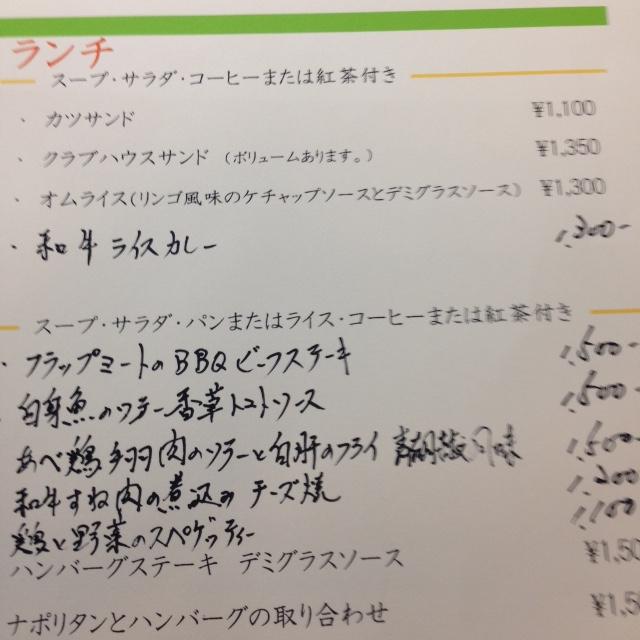 ランチ
スープ・サラダ・コーヒーまたは紅茶付き
・ カツサンド ¥1,100
・ クラブハウスサンド (ボリュームあります。) ¥1,350
・ オムライス(リンゴ風味のケチャップソースとデミグラスソース) ¥1,300
・ 和牛ライスカレー 1,300-
スープ・サラダ・パンまたはライス・コーヒーまたは紅茶付き
・ フラップミートのBBQビーフステーキ 1,500-
・ 白身魚のソテー香草トマトソース 1,500-
あべ鶏手羽肉のソテーと白肝のフライ 青胡椒風味 1,500-
和牛すね肉の煮込み チーズ焼 1,200
鶏と野菜のスペゲッティー 1,100
ハンバーグステーキ デミグラスソース ¥1,50
ナポリタンとハンバーグの取り合わせ ¥1,5